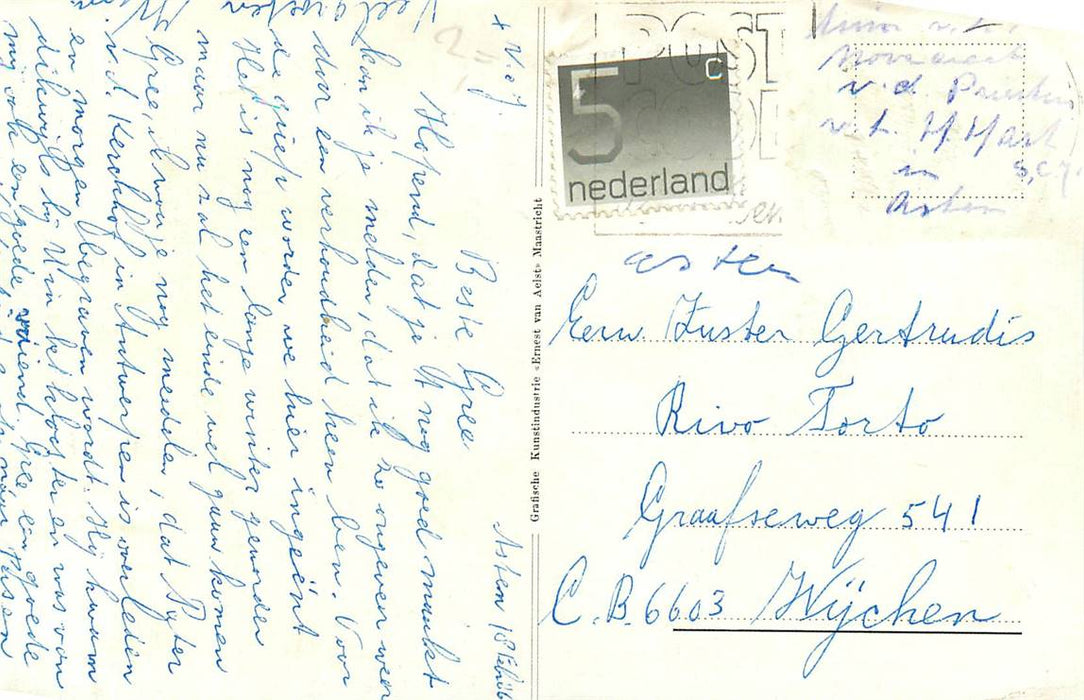 + V.Z.J.
Asten 18 Febr
Beste Gree
Hopend, dat je 't nog goed maakt
kan ik je melden, dat ik zo ongeveer weer
door een verkoudheid heen ben. Voor
de griep worden we hier ingeënt
Het is nog een lange winter geworden
maar nu zal het einde wel gauw komen
Gree, ik wou je nog meedelen, dat Pater
v.d. Kerckhof in Antwerpen is overleden
en morgen begraven wordt. Hij kwam
dikwijls bij U in het klooster en was van
mij ook een goede vriend. Gree een goede
Grafische Kunstindustrie «Ernest van Aelst» Maastricht
POST
CODE
5 c
nederland
v.d.
v. h. H Hart
in S.C.J.
Asten
asten
Eerw Zuster Gertrudis
Rivo Torto
Graafseweg 541
C.B. 6603 Wijchen